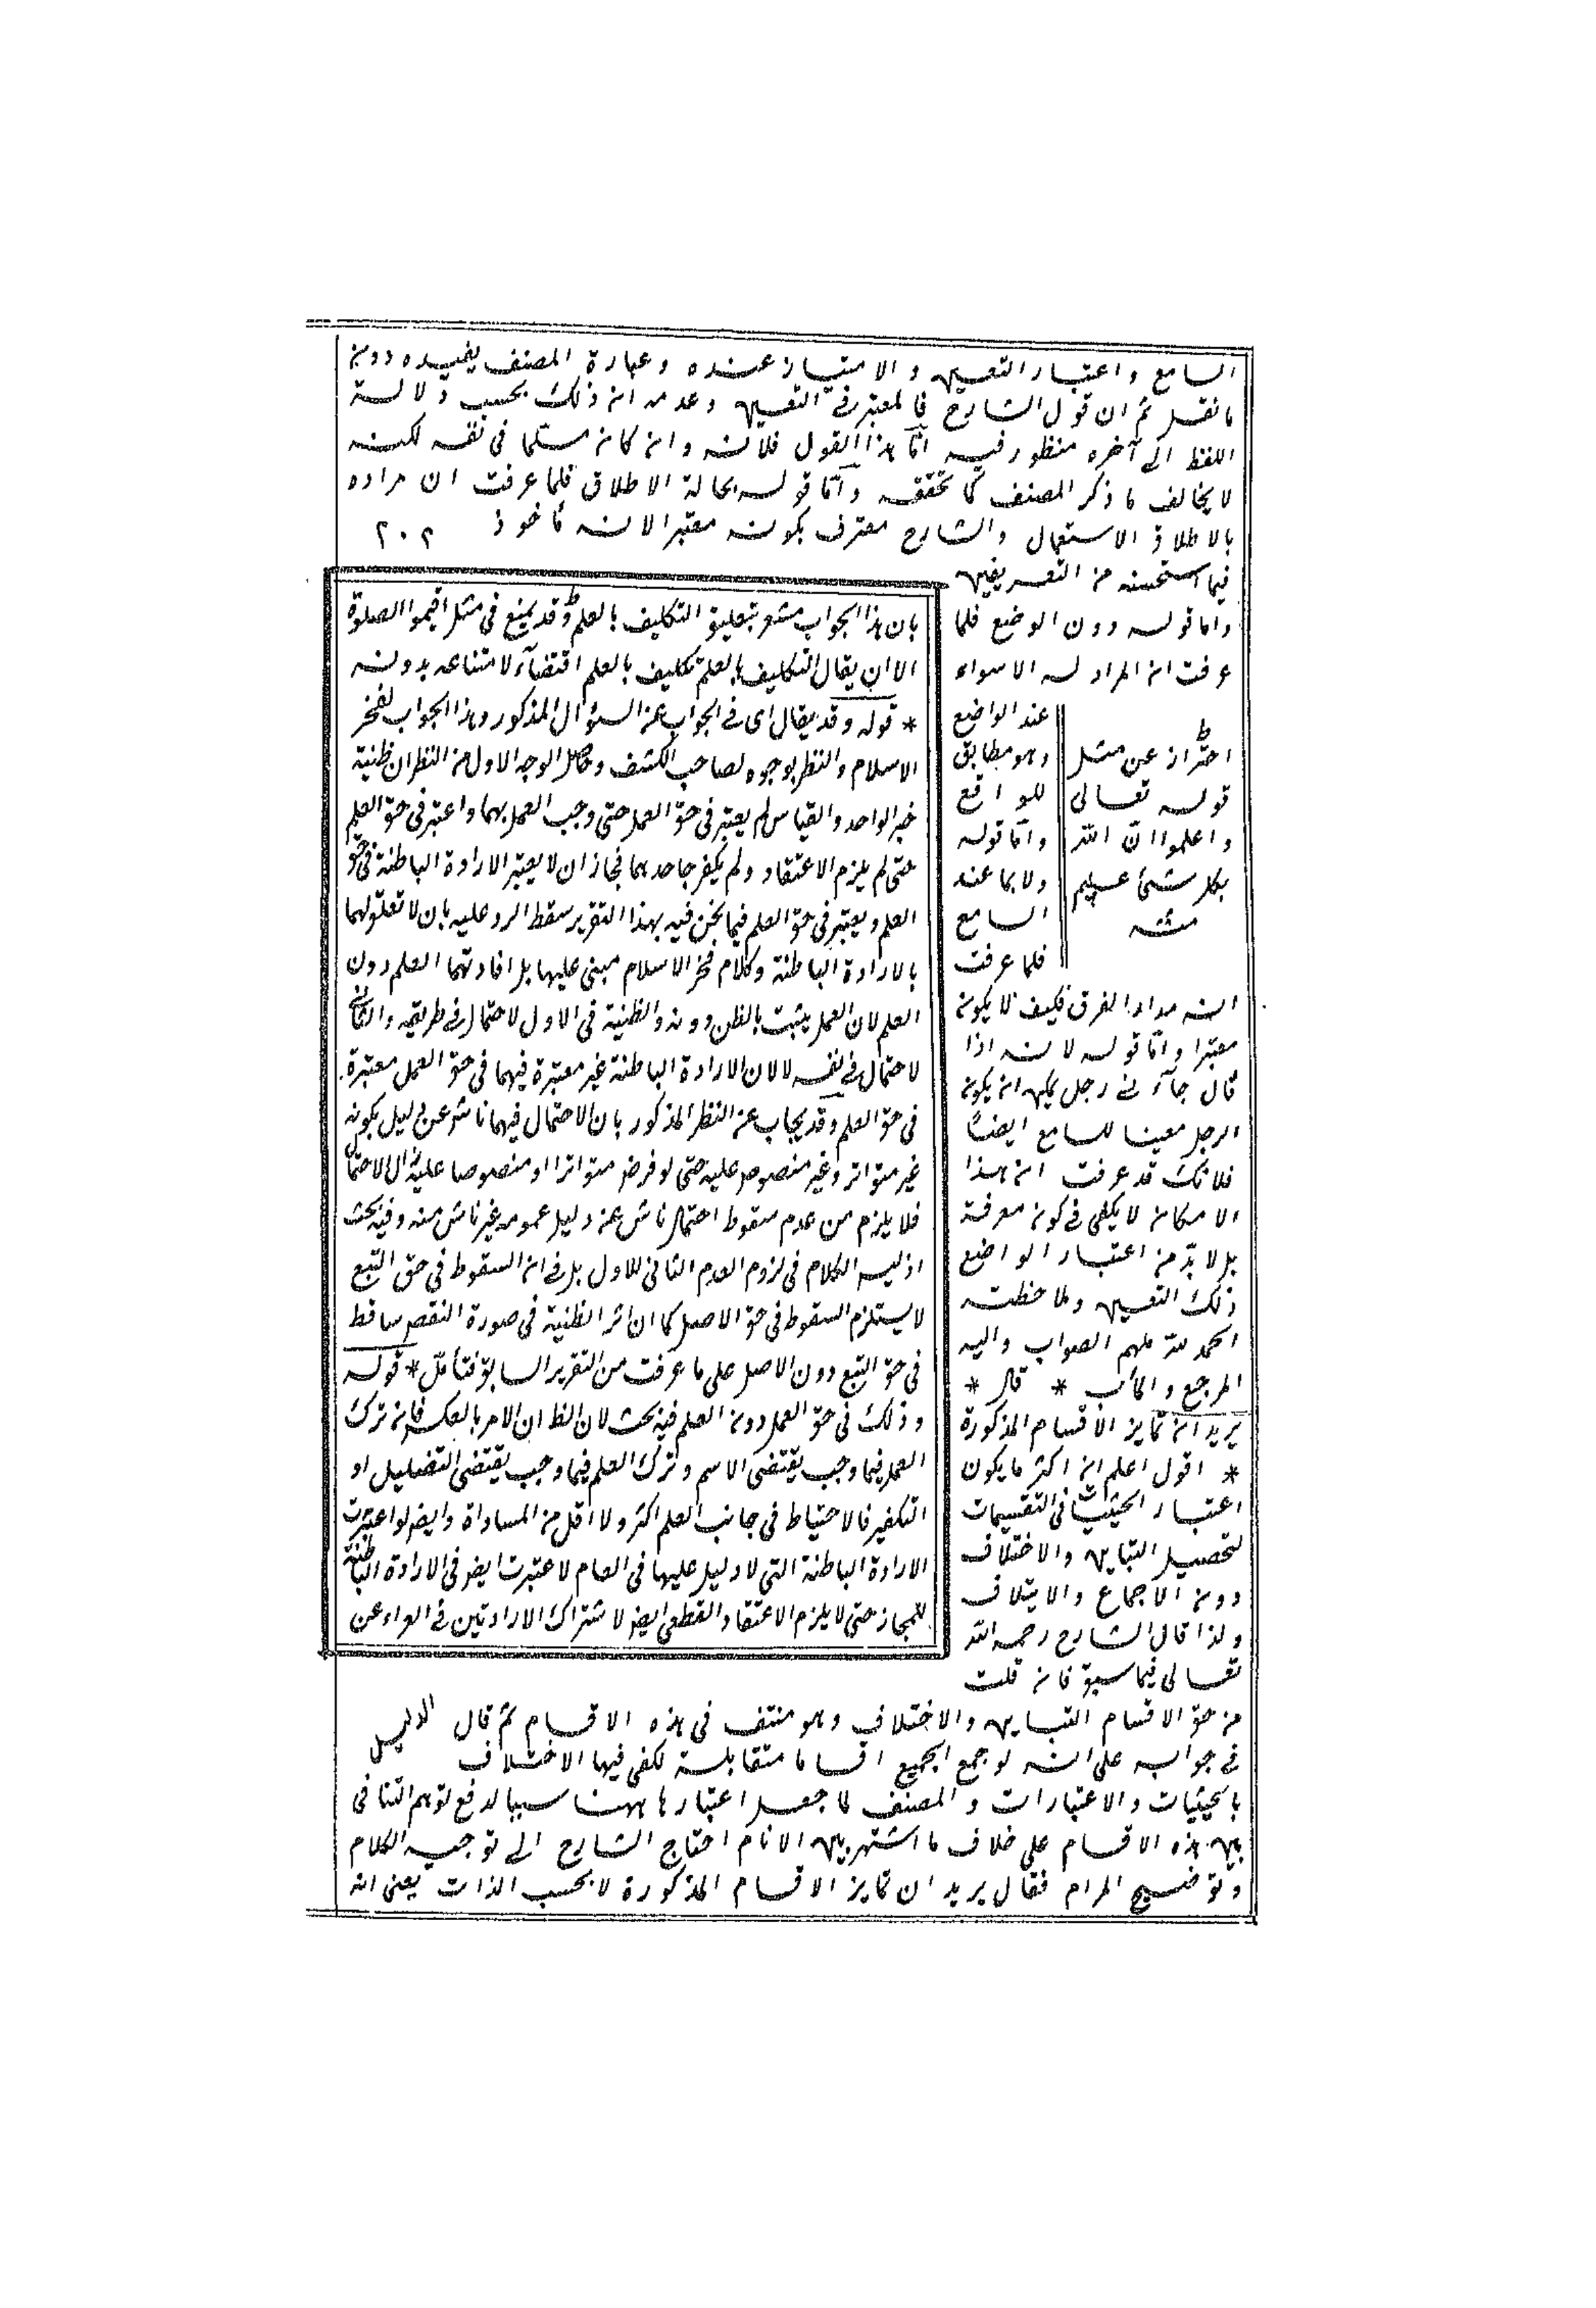 السامع واعتبار التعيين والامتياز عنده وعبارة المصنف يفيده دون
ما نقل ثم ان قول الشارح فالمعتبر في التعيين وعدمه ان ذلك بحسب دلالة
اللفظ الى آخره منظور فيه امّا هذا القول فلانه وان كان مسلّما في نفسه لكنه
لا يخالف ما ذكر المصنف كما تحققه وامّا قوله بحالة الاطلاق فلما عرفت ان مراده
بالاطلاق الاستعمال والشارح معترف بكونه معتبرا لانه مأخوذ ٢٠٢
فيما استحسنه من التعريفين
واما قوله دون الوضع فلما
عرفت ان المراد له الاسواء
عند الواضع
وهو مطابق
للواقع
وامّا قوله
ولا بما عند
السامع
فلما عرفت
انه مدار الفرق فكيف لا يكون
معتبرا وامّا قوله لانه اذا
قال جاءني رجل يمكن ان يكون
الرجل معينا للسامع ايضا
فلانك قد عرفت ان هذا
الامكان لا يكفى في كونه معرفة
بل لا بدّ من اعتبار الواضع
ذلك التعيين وملاحظته
الحمد لله ملهم الصواب واليه
المرجع والمآب * قال *
يريد ان تمايز الاقسام المذكورة
* اقول اعلم ان اكثر ما يكون
اعتبار الحيثيات في التقسيمات
لتحصيل التباين والاختلاف
دون الاجماع والايتلاف
ولذا قال الشارح رحمه الله
تعالى فيما سبق فان قلت
من حق الاقسام التباين والاختلاف وهو منتف في هذه الاقسام ثم قال
في جوابه على انه لو جمع الجميع اقساما متقابلة لكفى فيها الاختلاف
بالحيثيات والاعتبارات والمصنف لما جعل اعتبارها ههنا سببا لدفع توهم التنافى
بين هذه الاقسام على خلاف ما اشتهر بين الانام احتاج الشارح الى توجيه الكلام
وتوضيح المرام فقال يريد ان تمايز الاقسام المذكورة لا بحسب الذات يعنى انه
احتراز عن مثل
قوله تعالى
واعلموا انّ الله
بكل شئ عليم
منه
بان هذا الجواب مشعر بتعليق التكليف بالعلم وقد يمنع في مثل اقيموا الصلوة
الا ان يقال التكليف بالعلم تكليف بالعلم اقتضاء لامتناعه بدونه
* قوله وقد يقال اى في الجواب عن السؤال المذكور وهذا الجواب لفخر
الاسلام والنظر بوجوه لصاحب الكشف وحاصل الوجه الاول من النظر ان ظنية
خبر الواحد والقياس لم يعتبر في حق العمل حتى وجب العمل بهما واعتبر في حق العلم
حتى لم يلزم الاعتقاد ولم يكفر جاحدهما فجاز ان لا يعتبر الارادة الباطنة في حق
العلم ويعتبر في حق العلم فيما نحن فيه بهذا التقرير سقط الرد عليه بان لا تعلق لهما
بالارادة الباطنة وكلام فخر الاسلام مبنى عليها بل افادتهما العلم دون
العلم لان العمل يثبت بالظن دونه والظنية في الاول لاحتمال في طريقه والثانى
لاحتمال في نفسه لا لان الارادة الباطنة غير معتبرة فيهما في حق العمل معتبرة
في حق العلم وقد يجاب عن النظر المذكور بان الاحتمال فيهما ناش عن دليل بكونه
غير متواتر وغير منصوص عليه حتى لو فرض متواترا او منصوصا عليه زال الاحتمال
فلا يلزم من عدم سقوط احتمال ناش عن دليل عمومه غير ناش منه وفيه بحث
اذ ليس الكلام في لزوم العدم الثانى للاول بل في ان السقوط في حق التبع
لا يستلزم السقوط في حق الاصل كما ان اثر الظنية في صورة النقص ساقط
في حق التبع دون الاصل على ما عرفت من التقرير السابق فتأمّل * قوله
وذلك في حق العمل دون العلم فيه بحث لان الظ ان الامر بالعكس فان ترك
العمل فيما وجب يقتضى الاسم وترك العلم فيما وجب يقتضى التضليل او
التكفير فالاحتياط في جانب العلم اكثر ولا اقل من المساواة وايضا لو اعتبرت
الارادة الباطنة التى لا دليل عليها في العام لاعتبرت ايضا في الارادة الباطنة
للمجاز حتى لا يلزم الاعتقاد القطعى ايضا لاشتراك الارادتين في العراء عن
الدليل